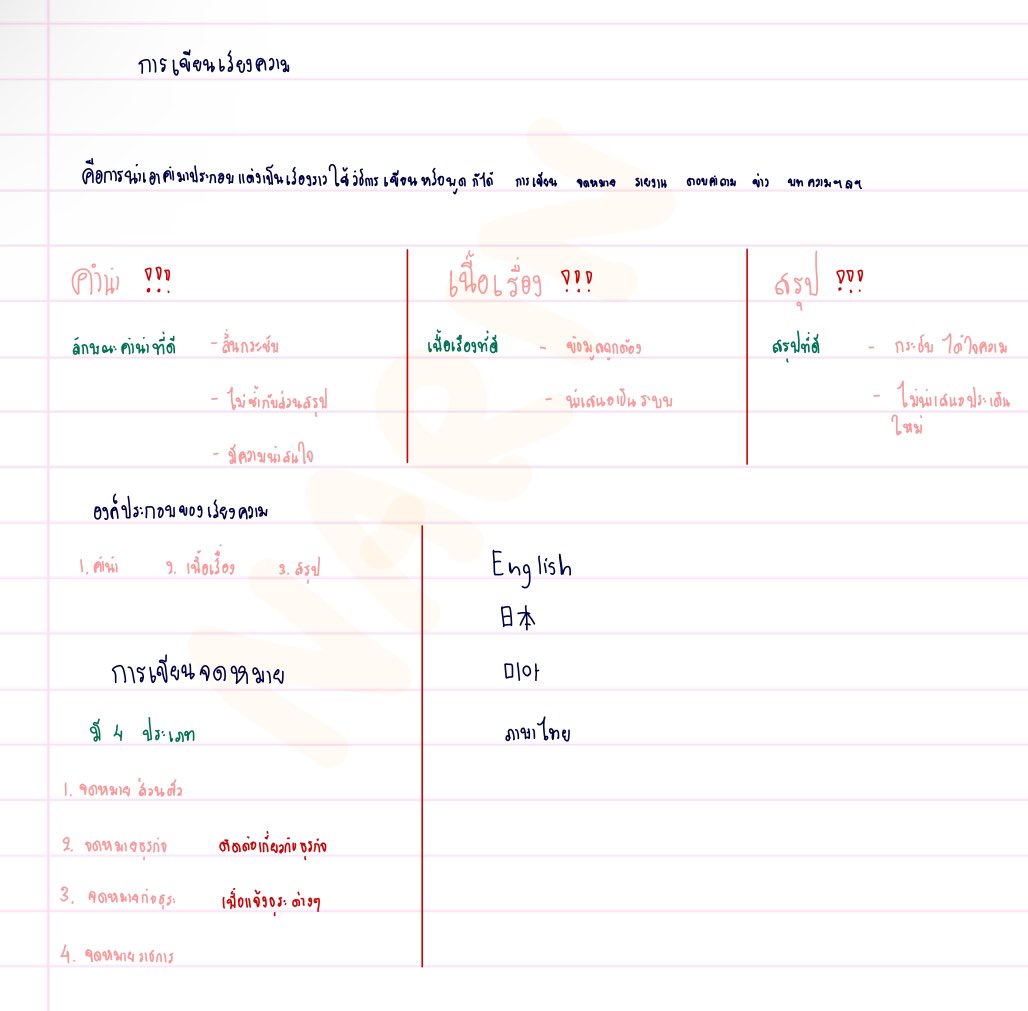 การเขียนเรียงความ
คือการนำเอาคำมาประกอบแต่งเป็นเรื่องราว ใช้วิธีการ เขียน หรือพูด ก็ได้ การเขียน จดหมาย รายงาน ตอบคำถาม ข่าว บทความฯลฯ
คำนำ !!!
ลักษณะคำนำที่ดี - สั้นกระชับ
- ไม่ซ้ำกับส่วนสรุป
- มีความน่าสนใจ
เนื้อเรื่อง !!!
เนื้อเรื่องที่ดี - ข้อมูลถูกต้อง
- นำเสนอเป็นระบบ
สรุป !!!
สรุปที่ดี - กระชับ ได้ใจความ
- ไม่นำเสนอประเด็น
ใหม่
องค์ประกอบของเรียงความ
1. คำนำ 2. เนื้อเรื่อง 3. สรุป
การเขียนจดหมาย
มี 4 ประเภท
1. จดหมาย ส่วนตัว
2. จดหมายธุรกิจ ติดต่อเกี่ยวกับธุรกิจ
3. จดหมายกิจธุระ เพื่อแจ้งธุระต่างๆ
4. จดหมายราชการ
English
日本
미아
ภาษาไทย
NARIN